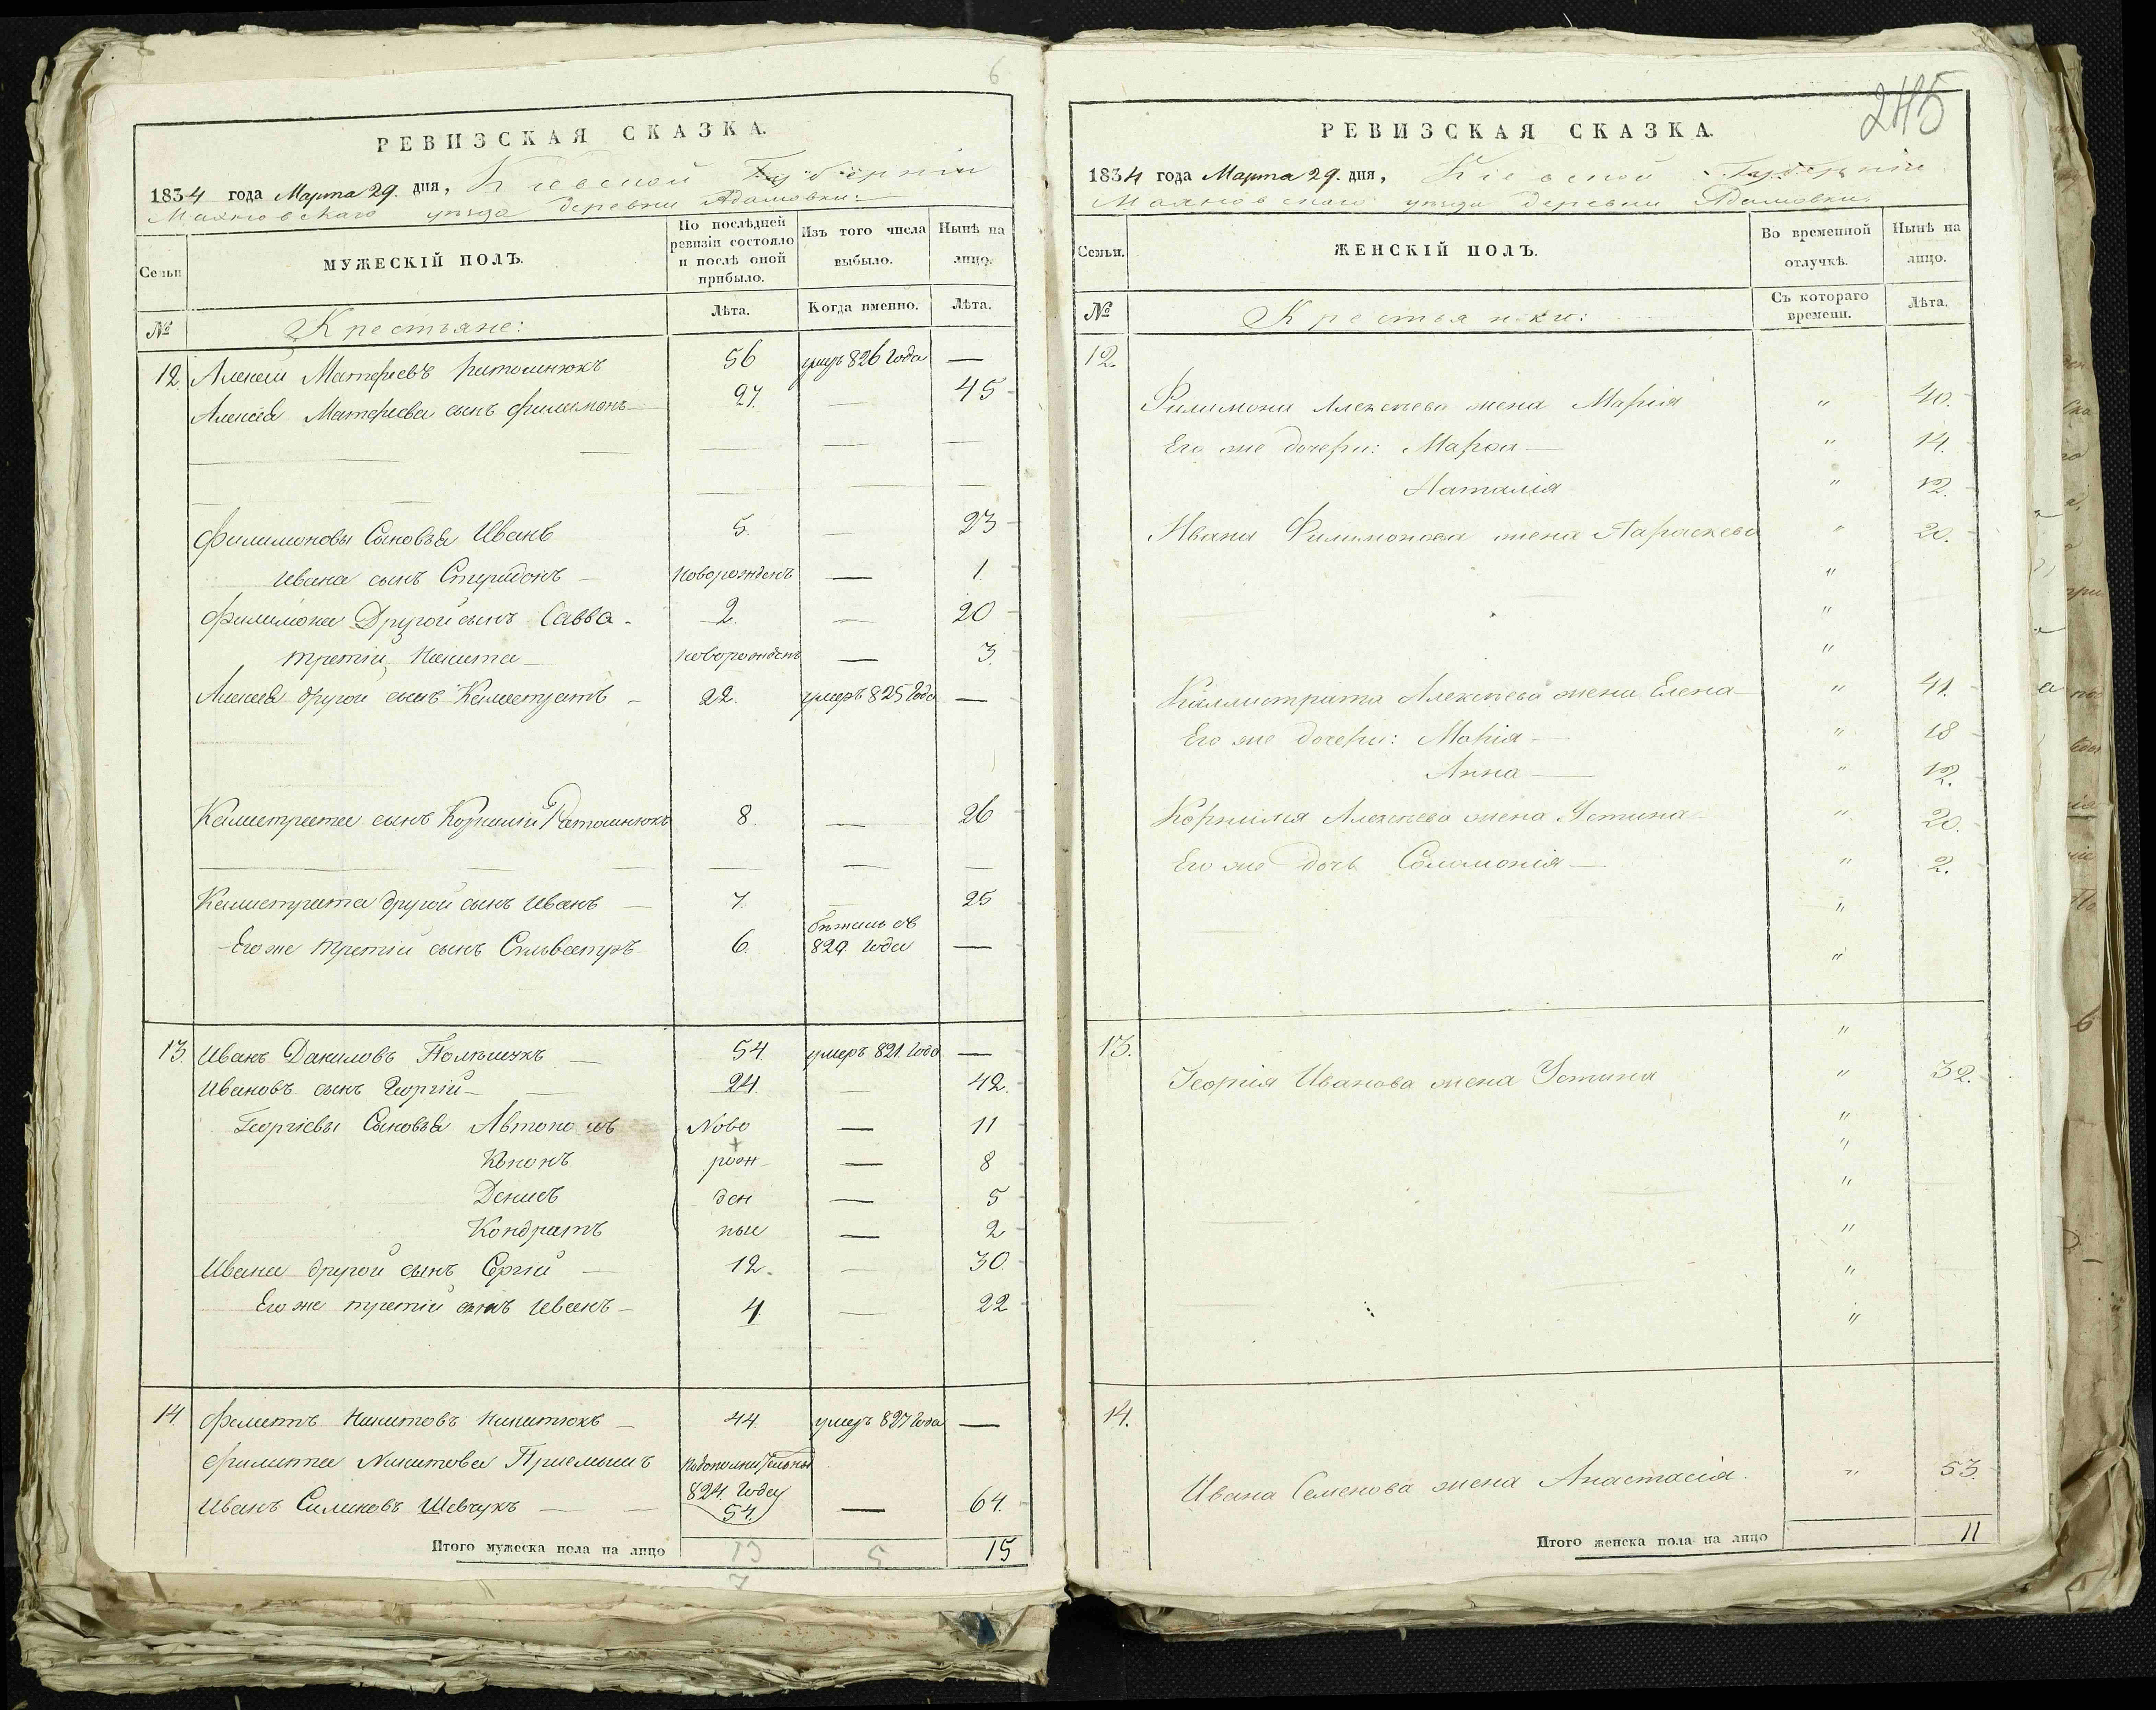 6
РЕВИЗСКАЯ СКАЗКА.
1834 года Марта 29. дня, Кіевской Губерніи
Махновскаго уѣзда деревни Адамовки:
Семьи
МУЖЕСКІЙ ПОЛЪ.
По послѣдней ревизіи состояло и послѣ оной прибыло.
Изъ того числа выбыло.
Нынѣ на лицо.
№
Крестьяне:
Лѣта.
Когда именно.
Лѣта.
12 Алексѣй Матфѣевъ 56 умеръ 826 года —
Алексѣя Матфѣева сынъ Филимонъ — 27. — 45
Филимоновы Сыновья Иванъ 5. — 23
Ивана сынъ Спиридонъ — новорожденъ — 1.
Филимона Другой сынъ Савва. 2. — 20
третій Никита — новорожденъ — 3.
Алексѣя другой сынъ Калистратъ — 22. умеръ 825 года —
Калистрата сынъ Корнилій 8. — 26
Калистрата другой сынъ Иванъ — 7. — 25
Его же третій сынъ Сильвестръ 6. бѣжалъ въ 829 года —
13. Иванъ Даниловъ — 54. умеръ 821. года —
Ивановъ сынъ Георгій — 24. — 42.
Георгіевы Сыновья Автоно мъ Ново — 11
Кононъ рож — 8
Денисъ ден — 5
Кондратъ ные — 2
Ивана другой сынъ Сергій — 12. — 30.
Его же третій сынъ Иванъ — 4. — 22
14. Никитовъ Никитюкъ — 44. умеръ 827 года —
Никитова Пріемышъ
824. Году
Иванъ Шевчукъ — 54. — 64.
Итого мужеска пола на лицо 13 5 15
7
245
РЕВИЗСКАЯ СКАЗКА.
1834 года Марта 29. дня, Кіевской Губерніи
Махновскаго уѣзда деревни Адамовки.
Семьи.
ЖЕНСКІЙ ПОЛЪ.
Во временной отлучкѣ.
Нынѣ на лицо.
№
Крестьянки:
Съ котораго времени.
Лѣта.
12.
Филимона Алексѣева жена Марія " 40.
Его же дочери: " 14.
Наталія " 12.
Ивана Филимонова жена Параскева " 20.
"
"
"
Каллистрата Алексѣева жена Елена — " 41.
Его же дочери: Марія — " 18
Анна — " 12.
Корнилія Алексѣева жена Устина " 20.
Его же дочь Соломонія — " 2.
"
"
13. "
Георгія Иванова жена Устина " 32.
"
"
"
"
"
"
14.
Ивана Семенова жена Анастасія. " 53.
Итого женска пола на лицо 11